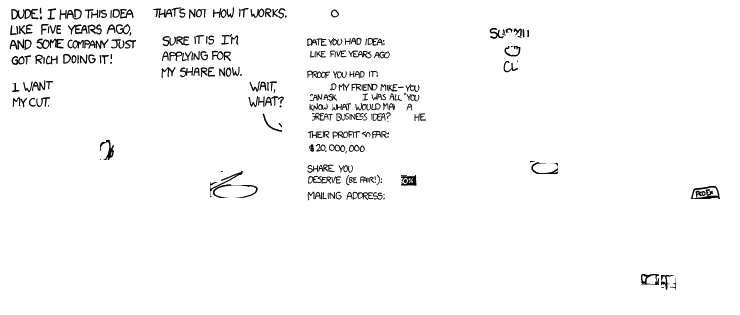 DUDE! I HAD THIS IDEA
LIKE FIVE YEARS AGO,
AND SOME COMPANY JUST
GOT RICH DOING IT!
I WANT
MY CUT.
THAT'S NOT HOW IT WORKS.
SURE IT IS I'M
APPLYING FOR
MY SHARE NOW.
WAIT,
WHAT?
DATE YOU HAD IDEA:
LIKE FIVE YEARS AGO
PROOF YOU HAD IT:
MY FRIEND MIKE—YOU
I WAS ALL "YOU
KNOW WHAT WOULD A
GREAT BUSINESS IDEA?
THEIR PROFIT SO FAR:
$20,000,000
SHARE YOU
DESERVE (BE FAIR!):
MAILING ADDRESS: